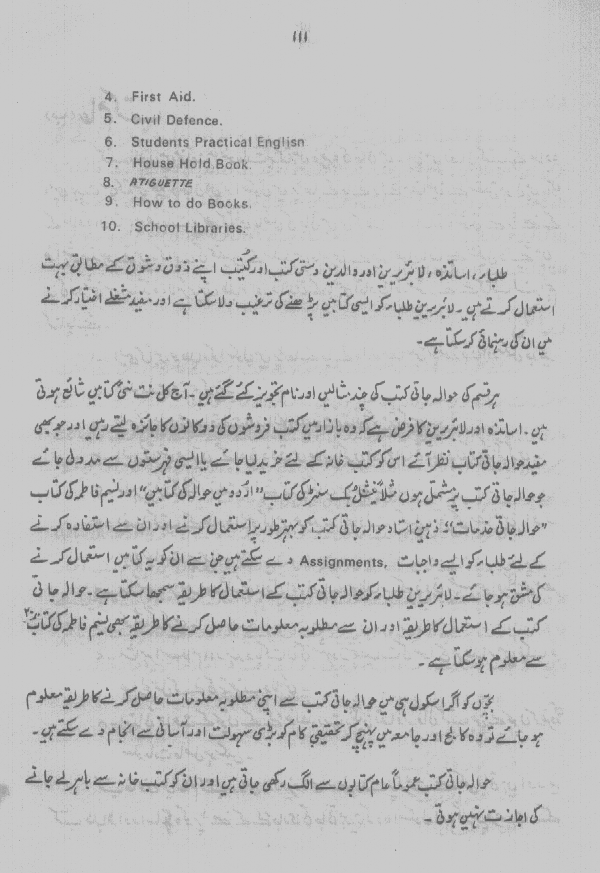 111
4. First Aid.
5. Civil Defence.
6. Students Practical Englisn
7. House Hold Book
8. ATIGUETTE
9. How to do Books.
10. School Libraries.
طلباء، اساتذہ، لائبریرین اور والدین دستی کتب اور کُتیب اپنے ذوق و شوق کے مطابق بہت
استعمال کرتے ہیں۔ لائبریرین طلباء کو ایسی کتابیں پڑھنے کی ترغیب دلا سکتا ہے اور مفید مشغلے اختیار کرنے
میں ان کی رہنمائی کر سکتا ہے۔
ہر قسم کی حوالہ جاتی کتب کی چند مثالیں اور نام تجویز کئے گئے ہیں۔ آج کل نت نئی کتابیں شائع ہوتی
ہیں۔ اساتذہ اور لائبریرین کا فرض ہے کہ وہ بازار میں کتب فروشوں کی دوکانوں کا جائزہ لیتے رہیں اور جو بھی
مفید حوالہ جاتی کتاب نظر آئے اس کو کتب خانہ کے لئے خرید لیا جائے یا ایسی فہرستوں سے مدد لی جائے
جو حوالہ جاتی کتب پر مشتمل ہوں مثلاً نیشنل بک سنٹر کی کتاب "اردو میں حوالہ کی کتابیں" اور نسیم فاطمہ کی کتاب
"حوالہ جاتی خدمات" ذہین استاد حوالہ جاتی کتب کو بہتر طور پر استعمال کرنے اور ان سے استفادہ کرنے
کے لئے طلباء کو ایسے واجبات Assignments, دے سکتے ہیں جن سے ان کو یہ کتابیں استعمال کرنے
کی مشق ہو جائے۔ لائبریرین طلباء کو حوالہ جاتی کتب کے استعمال کا طریقہ سمجھا سکتا ہے۔ حوالہ جاتی
کتب کے استعمال کا طریقہ اور ان سے مطلوبہ معلومات حاصل کرنے کا طریقہ بھی نسیم فاطمہ کی کتاب
سے معلوم ہو سکتا ہے۔
بچوں کو اگر اسکول ہی میں حوالہ جاتی کتب سے اپنی مطلوبہ معلومات حاصل کرنے کا طریقہ معلوم
ہو جائے تو وہ کالج اور جامعہ میں پہنچ کر تحقیقی کام کو بڑی سہولت اور آسانی سے انجام دے سکتے ہیں۔
حوالہ جاتی کتب عموماً عام کتابوں سے الگ رکھی جاتی ہیں اور ان کو کتب خانہ سے باہر لے جانے
کی اجازت نہیں ہوتی۔